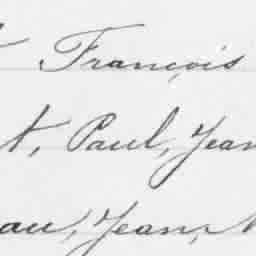 François
t, Paul, Jean
au, Jean,